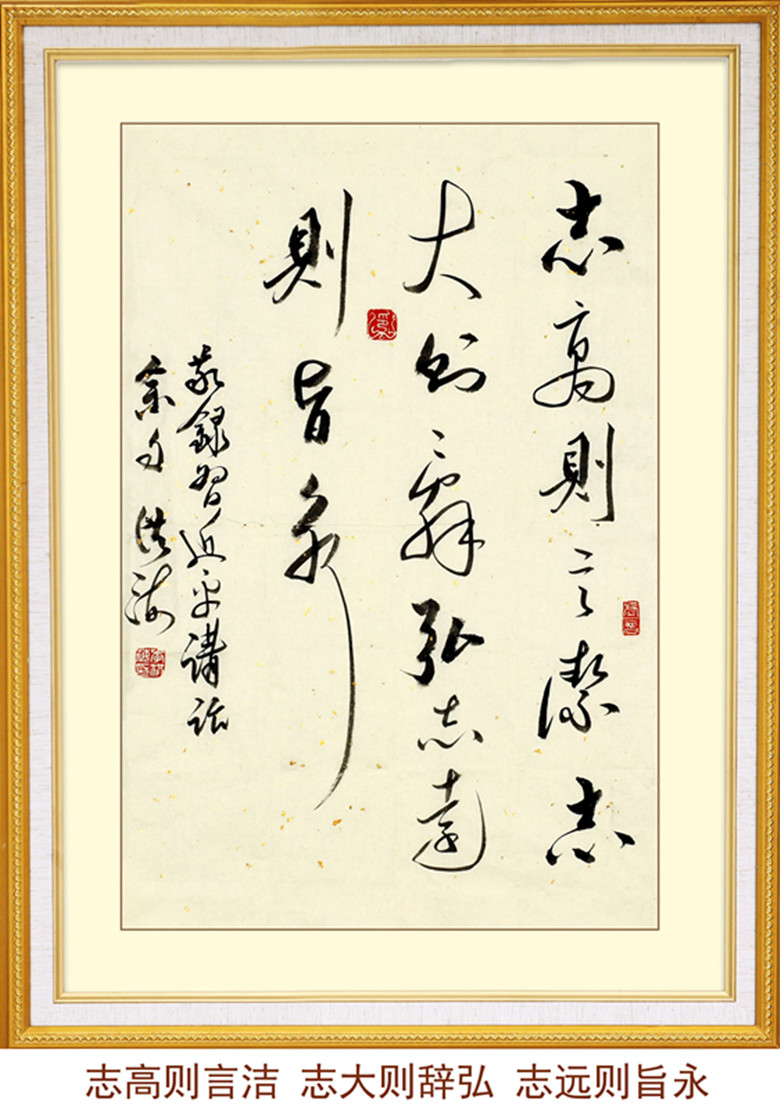 志高則言潔志
大則辭弘志遠
則旨永
敬錄習近平講話
洪海
志高则言洁 志大则辞弘 志远则旨永